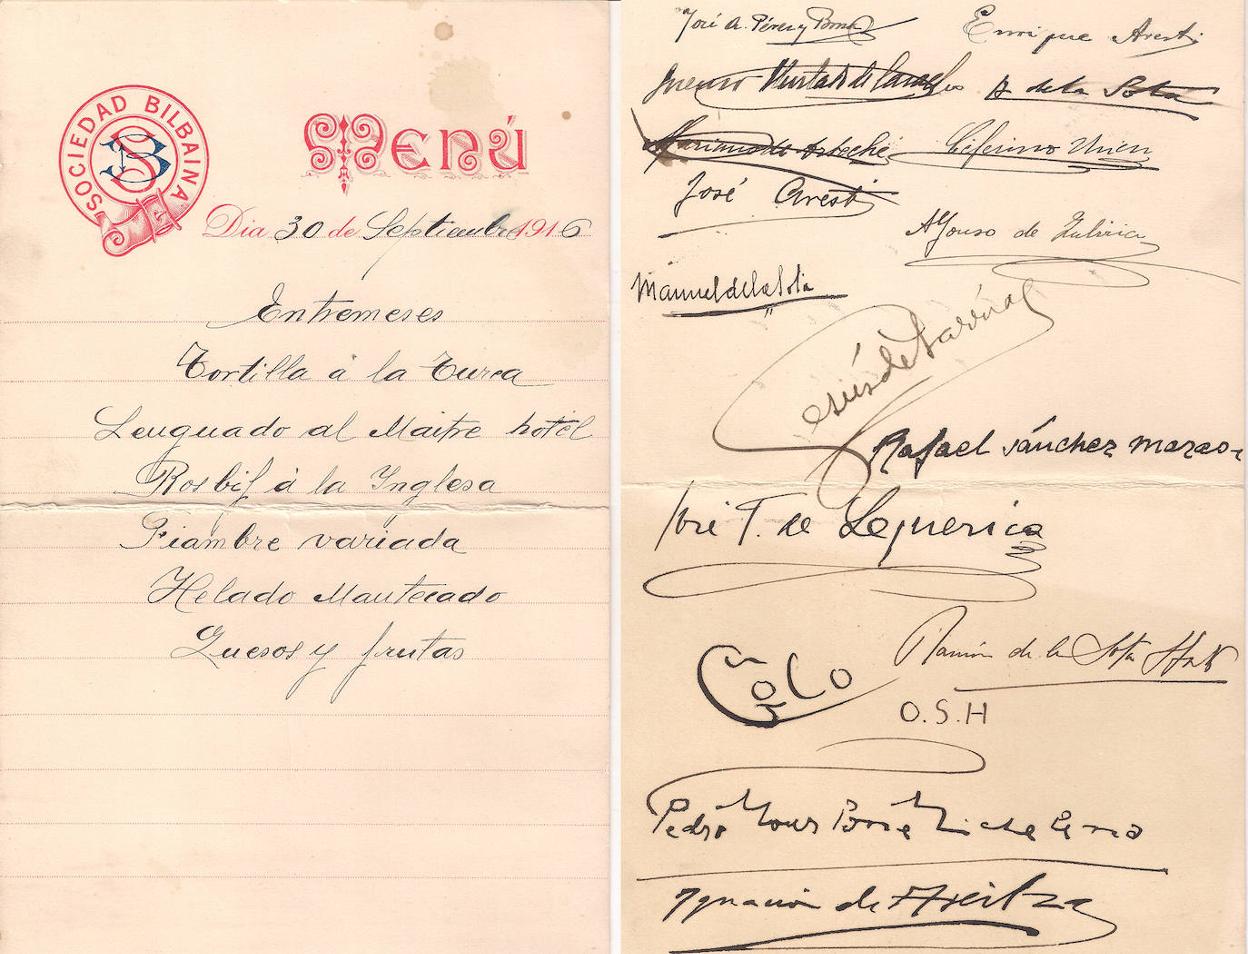 SOCIEDAD BILBAINA
SB
Menú
Dia 30 de Septiembre 1916
Entremeses
Tortilla á la Turca
Lenguado al Maitre hotel
Rosbif á la Inglesa
Fiambre variada
Helado Mantecado
Quesos y frutas
José A. Pérez y
Enrique Aresti
Hurtado de
de la Sota
Mariano de Arteche
Ceferino
José Aresti
Alfonso de Zubiria
Manuel de la Sota
Jesús de Sarria
Rafael Sánchez Mazas
José F. de Lequerica
Ramón de la Sota
O.S.H
Pedro Mourlane Michelena
Ignacio de Areilza